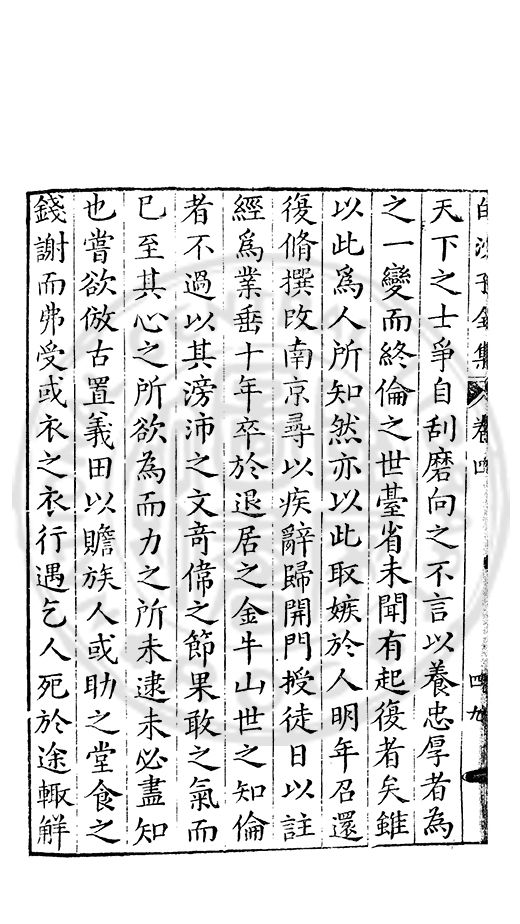 白沙子全集 卷四 四九
天下之士爭自刮磨向之不言以養忠厚者為
之一變而終倫之世臺省未聞有起復者矣雖
以此爲人所知然亦以此取嫉於人明年召還
復脩撰改南京尋以疾辭歸開門授徒日以註
經爲業垂十年卒於退居之金牛山世之知倫
者不過以其滂沛之文竒偉之節果敢之氣而
已至其心之所欲為而力之所未逮未必盡知
也嘗欲倣古置義田以贍族人或助之堂食之
錢謝而弗受或衣之衣行遇乞人死於途輙觧